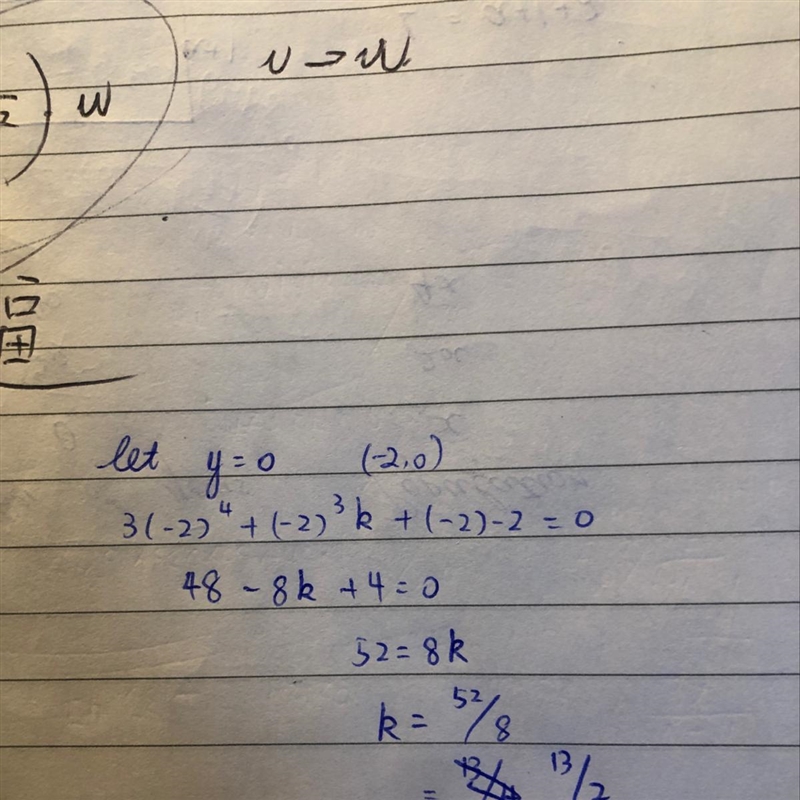 v → w
2 ) w
let y = 0 (-2, 0)
3(-2)⁴ + (-2)³k + (-2) - 2 = 0
48 - 8k + 4 = 0
52 = 8k
k = 52/8
= 13/2